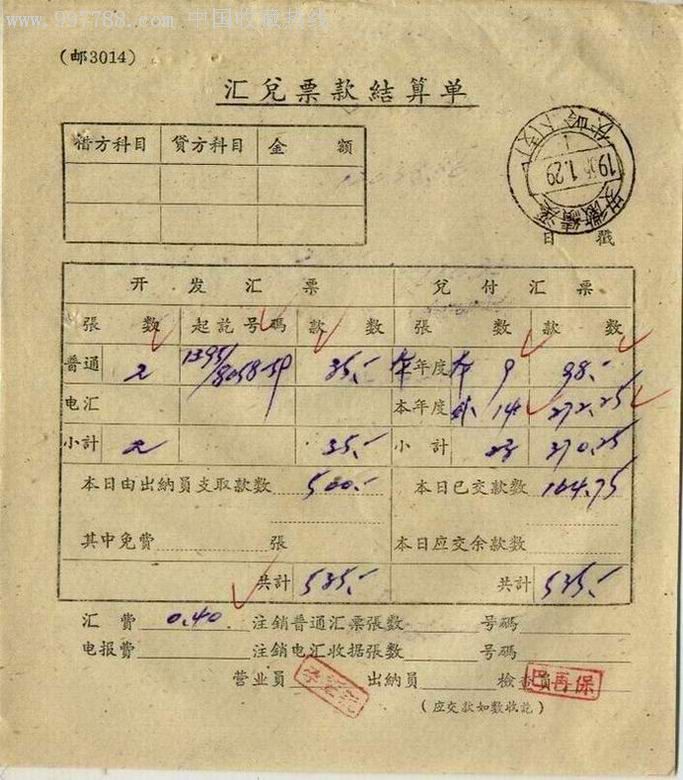 www.997788.com 中国收藏热线
(邮3014)
汇兑票款结算单
借方科目 贷方科目 金额
1.29
日戳
开发汇票 兑付汇票
张数 起訖号碼 款数 张数 款数
普通 2 35.- 年度 9 98.-
电汇 本年度 14 272.25
小計 2 35.- 小計 23 370.25
本日由出納員支取款数 500.- 本日已交款数 164.75
其中免费 张 本日应交余款数
共計 535.- 共計 535.-
汇费 0.40 注銷普通汇票張数 号碼
电报费 注銷电汇收据張数 号碼
营业員 出納員 檢查員 巴再保
(应交款如数收訖)